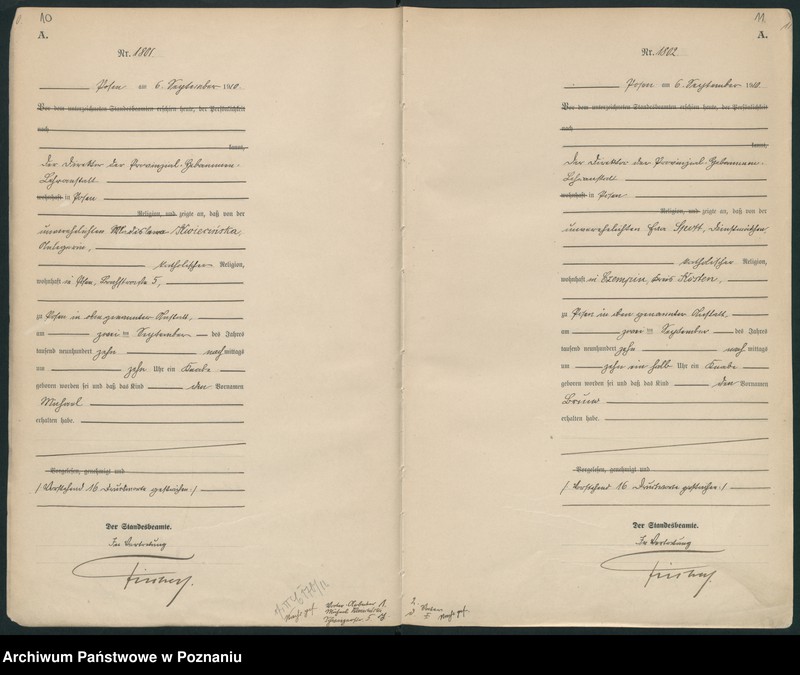 10
A.
Nr. 1801.
Posen am 6. September 1910.
Vor dem unterzeichneten Standesbeamten erschien heute, der Persönlichkeit
nach
kannt,
Der Direktor der Provinzial-Hebammen-
Lehranstalt
wohnhaft in Posen
Religion, und zeigte an, daß von der
unverehelichten Kwiecinska,
katholischer Religion,
wohnhaft in Posen, 5,
zu Posen in obengenannter Anstalt,
am zwei ten September des Jahres
tausend neunhundert zehn nachmittags
um zehn Uhr ein Knabe
geboren worden sei und daß das Kind den Vornamen
Michael
erhalten habe.
Vorgelesen, genehmigt und
/Vorstehend 16 Druckworte gestrichen./
Der Standesbeamte.
In Vertretung
11.
A.
Nr. 1802
Posen am 6. September 1910.
Vor dem unterzeichneten Standesbeamten erschien heute, der Persönlichkeit
nach
kannt,
Der Direktor der Provinzial-Hebammen-
Lehranstalt
wohnhaft in Posen
Religion, und zeigte an, daß von der
unverehelichten Dienstmädchen
katholischer Religion,
wohnhaft in Czempin, Kreis Kosten,
zu Posen in obengenannter Anstalt,
am zwei ten September des Jahres
tausend neunhundert zehn nachmittags
um zehn ein halb Uhr ein Knabe
geboren worden sei und daß das Kind den Vornamen
Bruno
erhalten habe.
Vorgelesen, genehmigt und
/Vorstehend 16 Druckworte gestrichen./
Der Standesbeamte.
In Vertretung
Archiwum Państwowe w Poznaniu